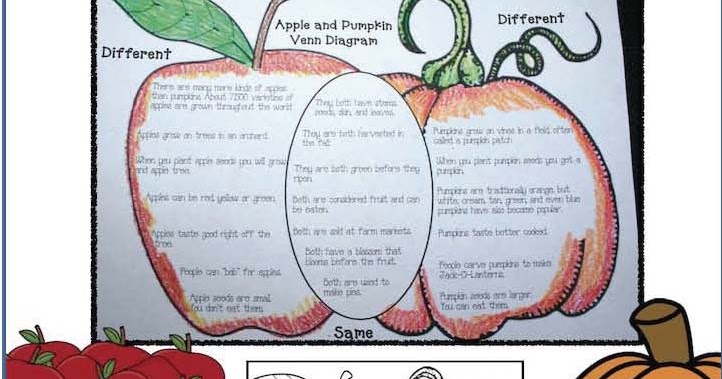 Apple and Pumpkin
Venn Diagram
Different
Different
There are many more kinds of apples
than pumpkins. About 7,500 varieties of
apples are grown throughout the world.
Apples grow on trees in an orchard.
When you plant apple seeds you will grow
and apple tree.
Apples can be red, yellow or green.
Apples taste good right off the
tree.
People can "bob" for apples.
Apple seeds are small.
You don't eat them.
They both have stems,
seeds, skin, and leaves.
They are both harvested in
the fall.
They are both green before they
ripen.
Both are considered fruit and can
be eaten.
Both are sold at farm markets.
Both have a blossom that
blooms before the fruit.
Both are used to
make pies.
Pumpkins grow on vines in a field, often
called a pumpkin patch.
When you plant pumpkin seeds you get a
pumpkin.
Pumpkins are traditionally orange, but
white, cream, tan, green, and even blue
pumpkins have also become popular.
Pumpkins taste better cooked.
People carve pumpkins to make
Jack-O-Lanterns.
Pumpkin seeds are larger.
You can eat them.
Same